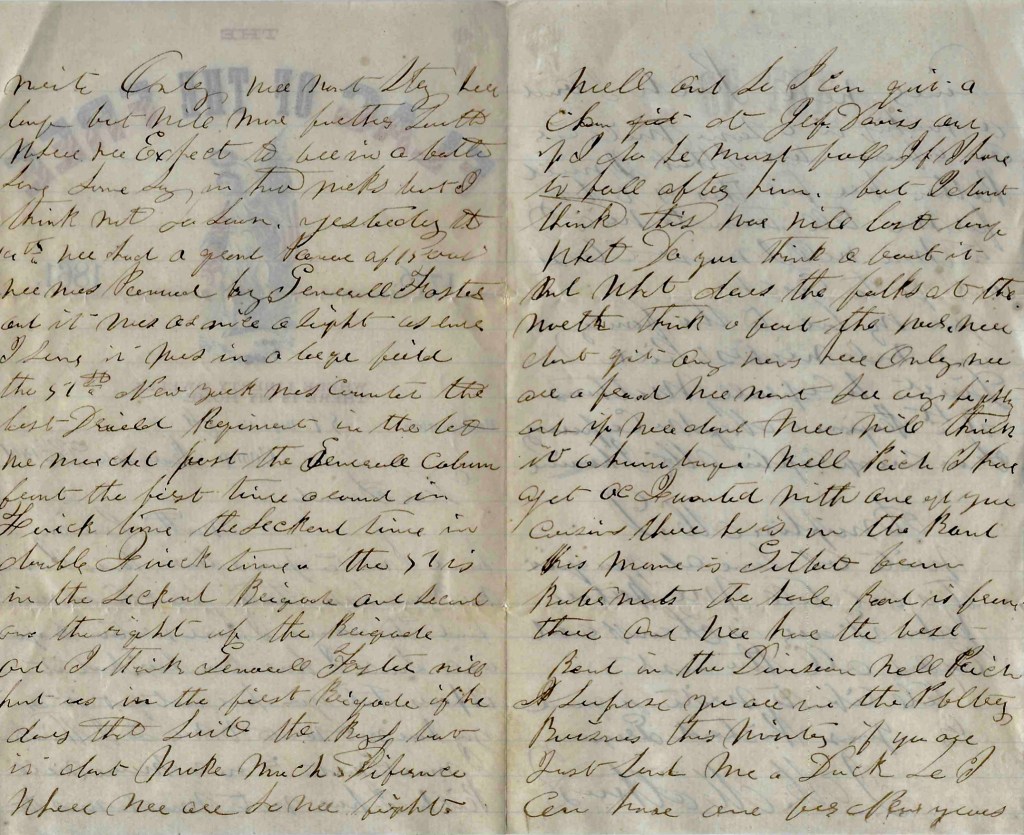 write Only wee wont Stay heer
long but will move further South
Where wee Expect to bee in a battle
Some Say in two weeks but I
think not so Soon. yesterday the
wee had a grand Revue of
wee was Revued by Generell Foster
and it was as nice a Sight as ever
I Seen it was in a large field
the 57th New york was Counted the
best Driled Regiment in the lot
we marchel past the Generell Colum
front the first time around in
Quick time the Seckent time in
double Quick time. the 57 is
in the Seckent Brigade and Secend
on the right of the Brigade
and I think Generell Foster will
put us in the first Brigade if he
does that Suits the Boys but
it dont Make Much Diference
Where wee are So wee fight
well and So I Can git a
Chan git at Jef. Daviss and
if I do he must fall If I have
to fall after him. but I dont
think this war will last long
What Do you think a bout it
and What does the folks at the
North think a bout the war. wee
dont git any news here Only wee
are afraid wee wont See any fights
and if wee dont wee will think
it a humbuge Well Rich I have
got acquanted with one of your
Cusins there he is in the Band
his Name is Gilbert from
Buternuts the hole Band is from
there and wee have the best
Band in the Division Well Rich
I Supose you are in the Poltry
Buisnes this Winter if you are
Just Send Me a Duck So I
Can have one for New years